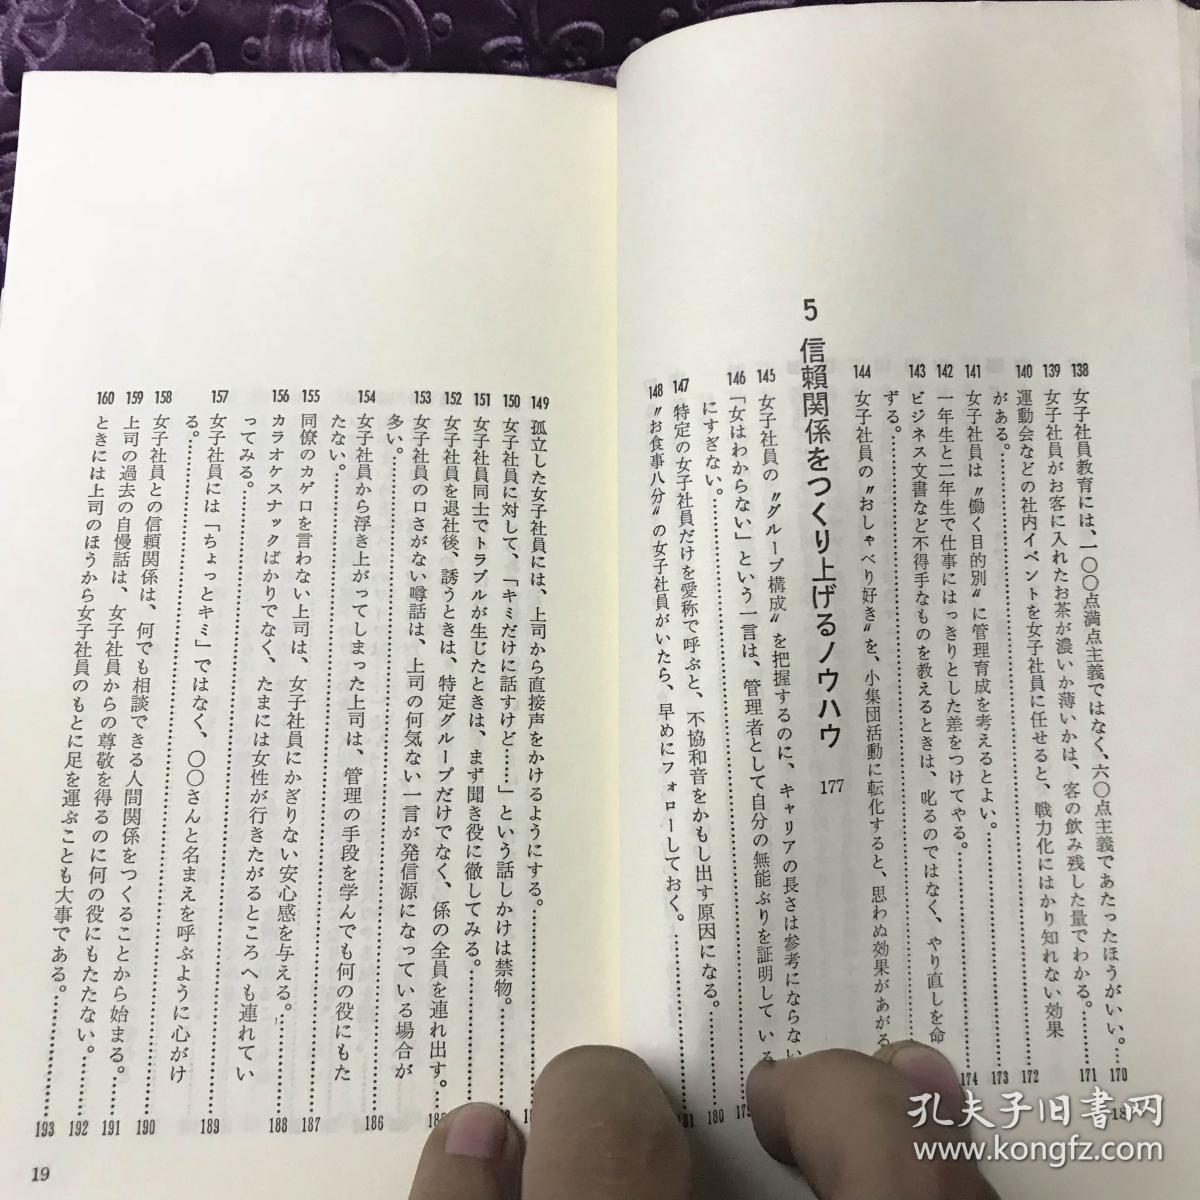 138 女子社員教育には、一〇〇点満点主義ではなく、六〇点主義であたったほうがいい。……170
139 女子社員がお客に入れたお茶が濃いか薄いかは、客の飲み残した量でわかる。……171
140 運動会などの社内イベントを女子社員に任せると、戦力化にはかり知れない効果
がある。……172
141 女子社員は〝働く目的別〟に管理育成を考えるとよい。……173
142 一年生と二年生で仕事にはっきりとした差をつけてやる。……174
143 ビジネス文書など不得手なものを教えるときは、叱るのではなく、やり直しを命
ずる。……
144 女子社員の〝おしゃべり好き〟を、小集団活動に転化すると、思わぬ効果があがる
5 信頼関係をつくり上げるノウハウ 177
145 女子社員の〝グループ構成〟を把握するのに、キャリアの長さは参考にならない
146 「女はわからない」という一言は、管理者として自分の無能ぶりを証明している
にすぎない。……
147 特定の女子社員だけを愛称で呼ぶと、不協和音をかもし出す原因になる。……180
148 〝お食事八分〟の女子社員がいたら、早めにフォローしておく。……181
18
149 孤立した女子社員には、上司から直接声をかけるようにする。……
150 女子社員に対して、「キミだけに話すけど……」という話しかけは禁物。……
151 女子社員同士でトラブルが生じたときは、まず聞き役に徹してみる。……
152 女子社員を退社後、誘うときは、特定グループだけでなく、係の全員を連れ出す。……
153 女子社員の口さがない噂話は、上司の何気ない一言が発信源になっている場合が
多い。……
154 女子社員から浮き上がってしまった上司は、管理の手段を学んでも何の役にもた
たない。……186
155 同僚のカゲ口を言わない上司は、女子社員にかぎりない安心感を与える。……187
156 カラオケスナックばかりでなく、たまには女性が行きたがるところへも連れてい
ってみる。……188
157 女子社員には「ちょっとキミ」ではなく、〇〇さんと名まえを呼ぶように心がけ
る。……189
158 女子社員との信頼関係は、何でも相談できる人間関係をつくることから始まる。……190
159 上司の過去の自慢話は、女子社員からの尊敬を得るのに何の役にもたたない。……191
160 ときには上司のほうから女子社員のもとに足を運ぶことも大事である。……192
193
19
孔夫子旧書网
www.kongfz.com